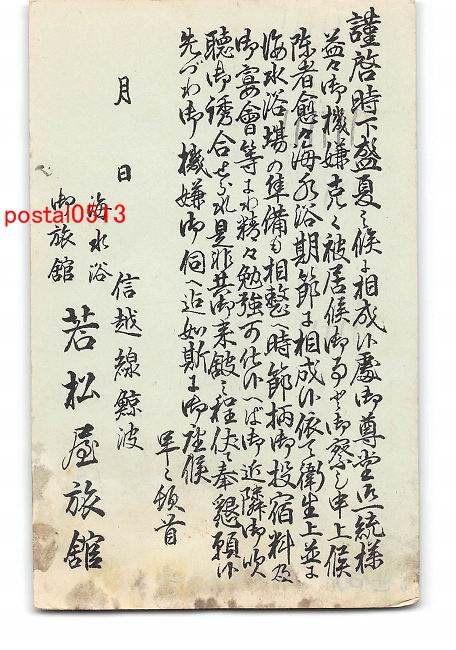 謹啓時下盛夏之候ニ相成候處御尊堂御一統様
益々御機嫌克く被居候御事と御察し申上候
陳者愈々海水浴期節ニ相成候依て衛生上並ニ
海水浴場の準備も相整へ時節柄御投宿料及
御宴會等ニわ精々勉強可仕候へば御近隣御吹
聴御誘合せられ是非共御来舘之程伏て奉懇願候
先づわ御機嫌御伺へ迠如斯ニ御座候
早々頓首
月 日
海水浴
御旅舘
信越線鯨波
若松屋旅舘
postal0513